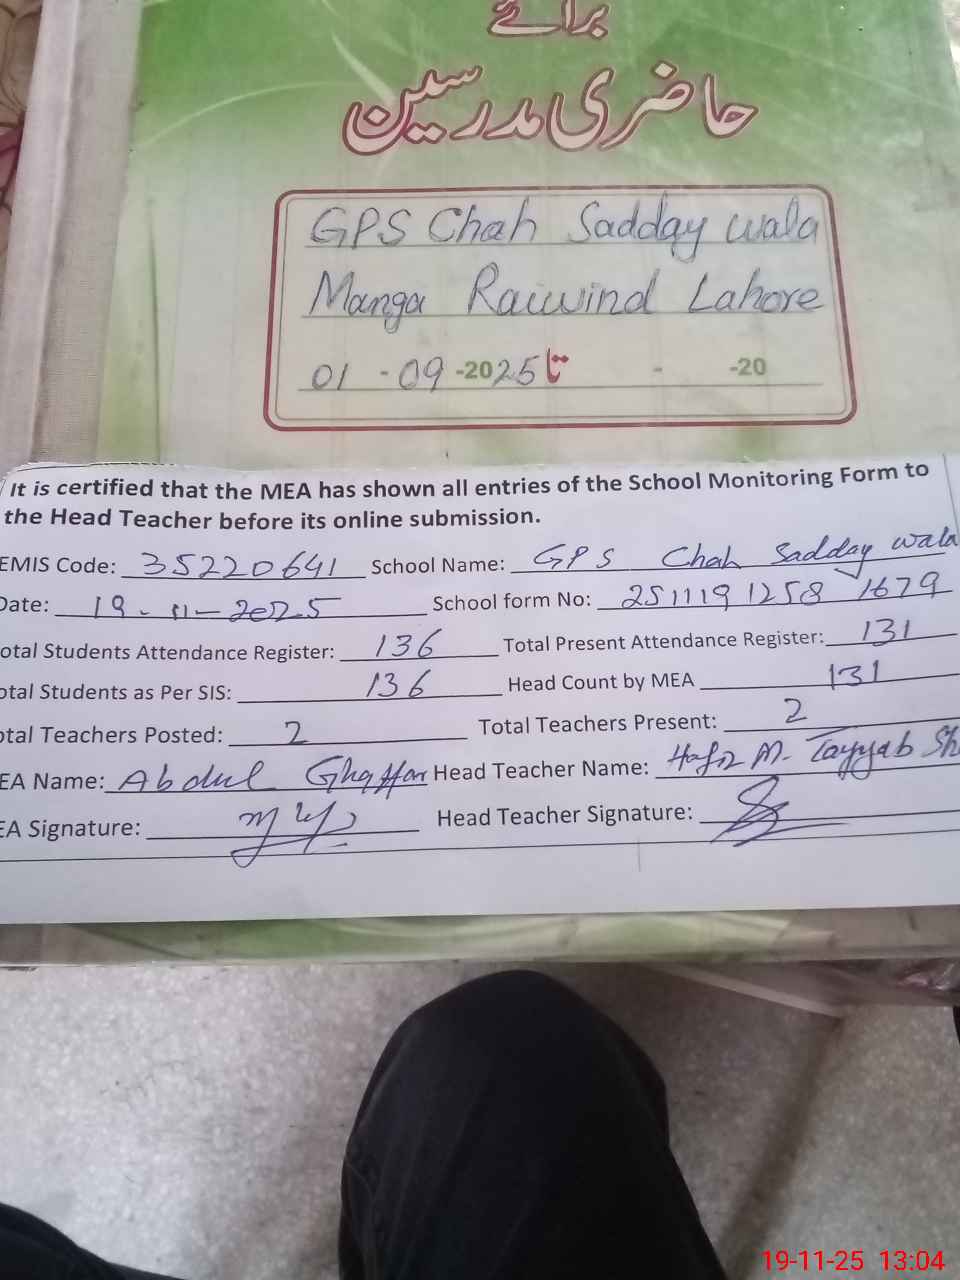 برائے
حاضری مدرسین
GPS Chah Sadday wala
Manga Raiwind Lahore
01 - 09 -2025 تا - -20
It is certified that the MEA has shown all entries of the School Monitoring Form to
the Head Teacher before its online submission.
EMIS Code: 35220641 School Name: GPS Chah Sadday wala
Date: 19-11-2025 School form No: 251119 1258 1679
otal Students Attendance Register: 136 Total Present Attendance Register: 131
otal Students as Per SIS: 136 Head Count by MEA 131
otal Teachers Posted: 2 Total Teachers Present: 2
EA Name: Abdul Ghaffar Head Teacher Name: Hafiz M. Tayyab Sh
EA Signature: Head Teacher Signature:
19-11-25 13:04